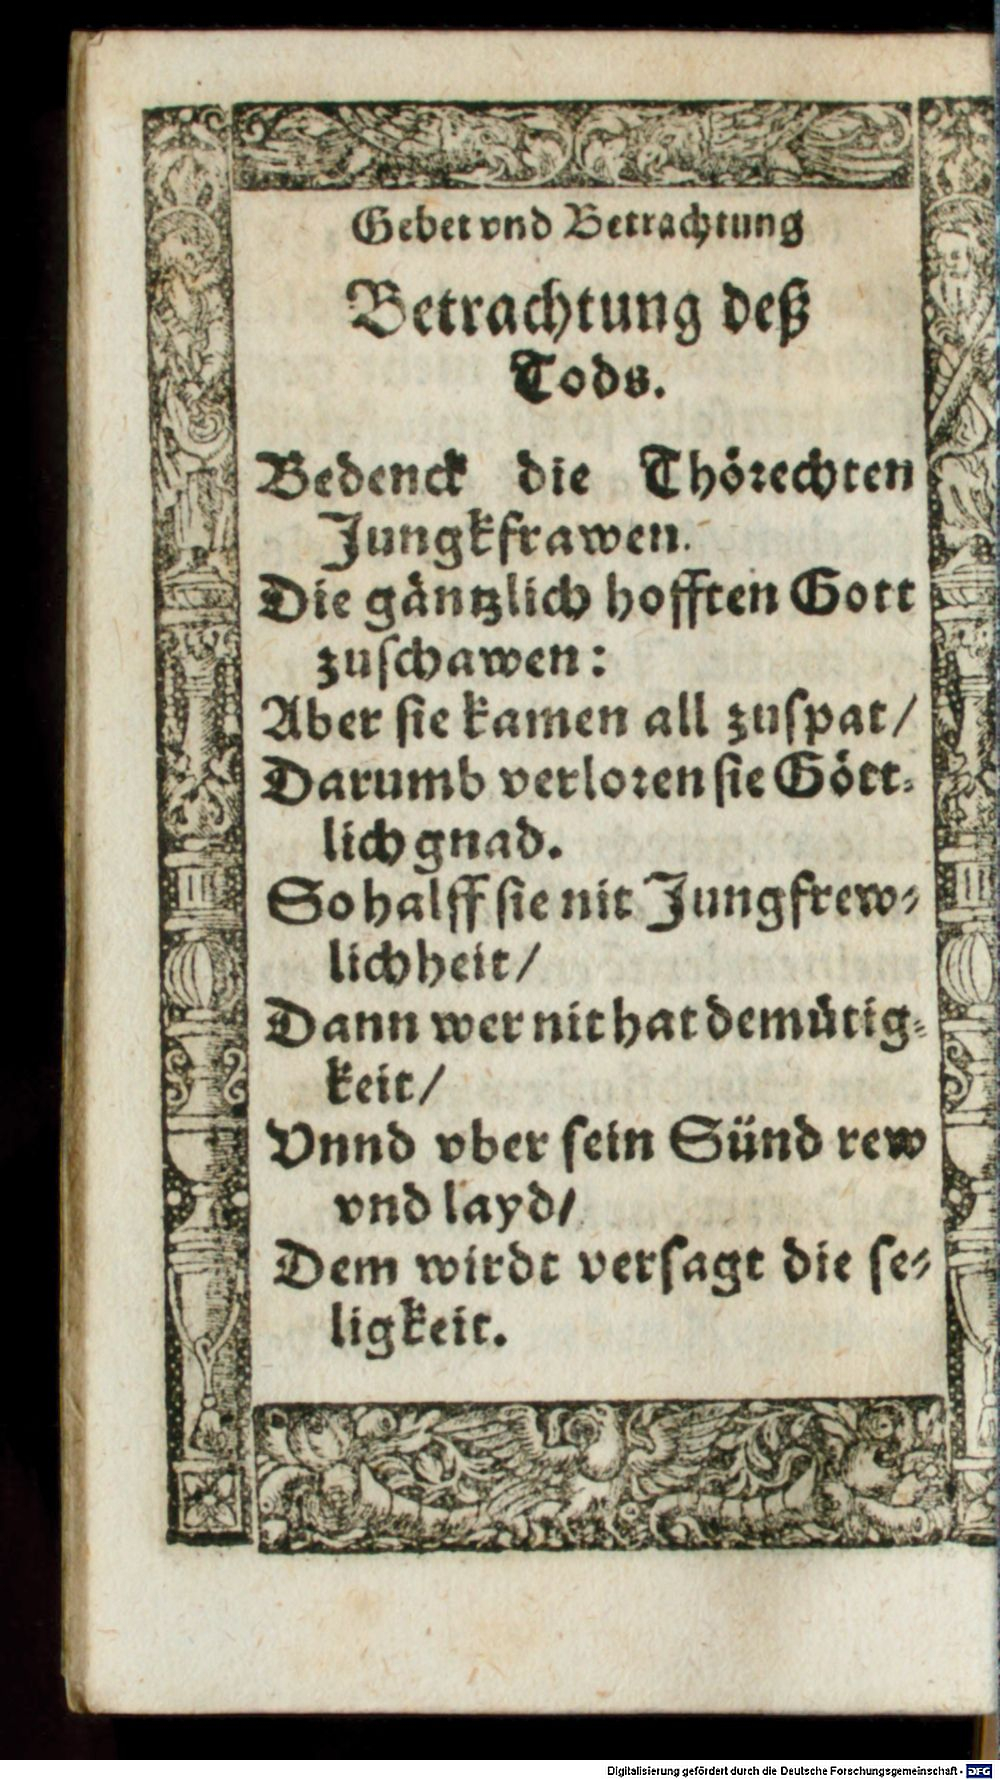 Gebet vnd Betrachtung
Betrachtung deß
Tods.
Bedenck die Thörechten
Jungkfrawen.
Die gäntzlich hofften Gott
zuschawen:
Aber sie kamen all zuspat/
Darumb verloren sie Gött-
lich gnad.
So halff sie nit Jungfrew-
lichheit/
Dann wer nit hat demütig-
keit/
Vnnd vber sein Sünd rew
vnd layd/
Dem wirdt versagt die se-
ligkeit.
Digitalisierung gefördert durch die Deutsche Forschungsgemeinschaft - DFG